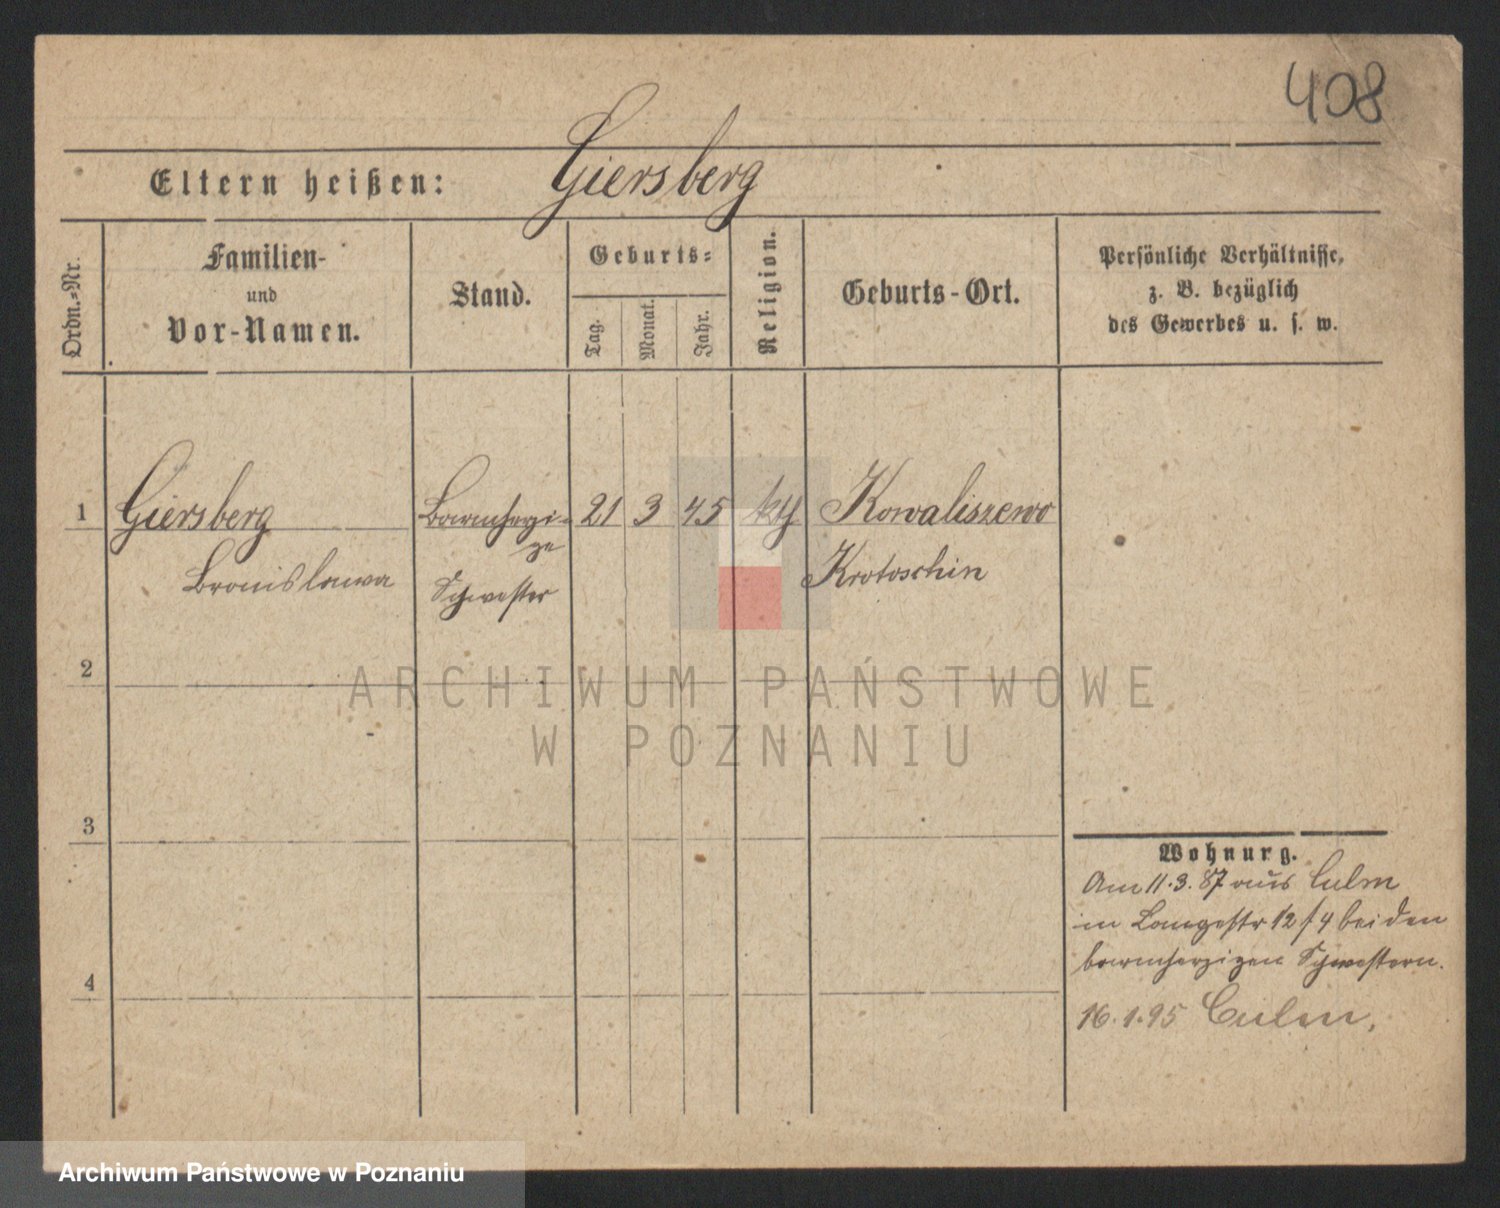 408
Eltern heißen: Giersberg
Ordn.=Nr.
Familien-
und
Vor-Namen.
Stand.
Geburts=
Tag.
Monat.
Jahr.
Religion.
Geburts-Ort.
Persönliche Verhältnisse,
z. B. bezüglich
des Gewerbes u. s. w.
1 Giersberg Barmherzi- 21 3 45 kth Kowaliszewo
ge
Bronislawa Schwester Krotoschin
2
ARCHIWUM PAŃSTWOWE
W POZNANIU
3
Wohnung.
Am 11.3.87 aus Culm
in Langestr 12/4 bei den
barmherzigen Schwestern.
4
16.1.95 Culm,
Archiwum Państwowe w Poznaniu